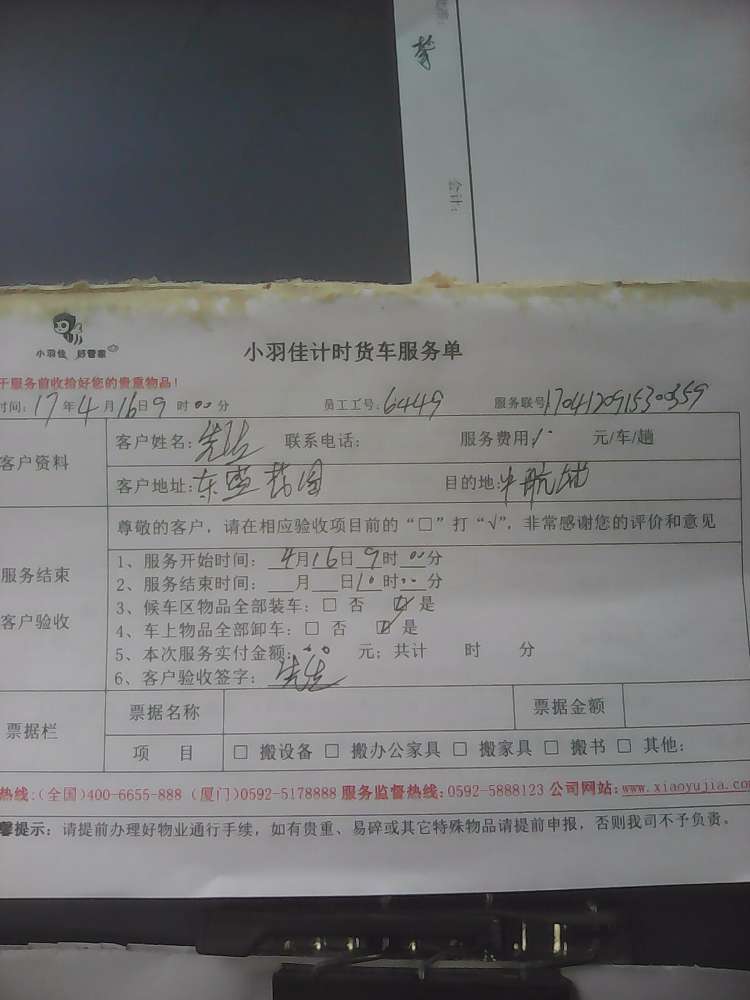 会计:
小羽佳 好管家
小羽佳计时货车服务单
于服务前收拾好您的贵重物品!
时间: 17年4月16日9时00分 员工工号: 6449 服务联号170412091530359
客户资料
客户姓名: 联系电话: 服务费用 元/车/趟
客户地址: 东 目的地:
尊敬的客户，请在相应验收项目前的“□”打“√”，非常感谢您的评价和意见
服务结束
客户验收
1、服务开始时间: 4月16日9时00分
2、服务结束时间: 月 日10时00分
3、候车区物品全部装车: □ 否 ☑ 是
4、车上物品全部卸车: □ 否 ☑ 是
5、本次服务实付金额: 元; 共计 时 分
6、客户验收签字:
票据栏
票据名称 票据金额
项 目 □ 搬设备 □ 搬办公家具 □ 搬家具 □ 搬书 □ 其他:
热线:(全国)400-6655-888 (厦门)0592-5178888 服务监督热线:0592-5888123 公司网站:www.xiaoyujia.com
馨提示: 请提前办理好物业通行手续，如有贵重、易碎或其它特殊物品请提前申报，否则我司不予负责。